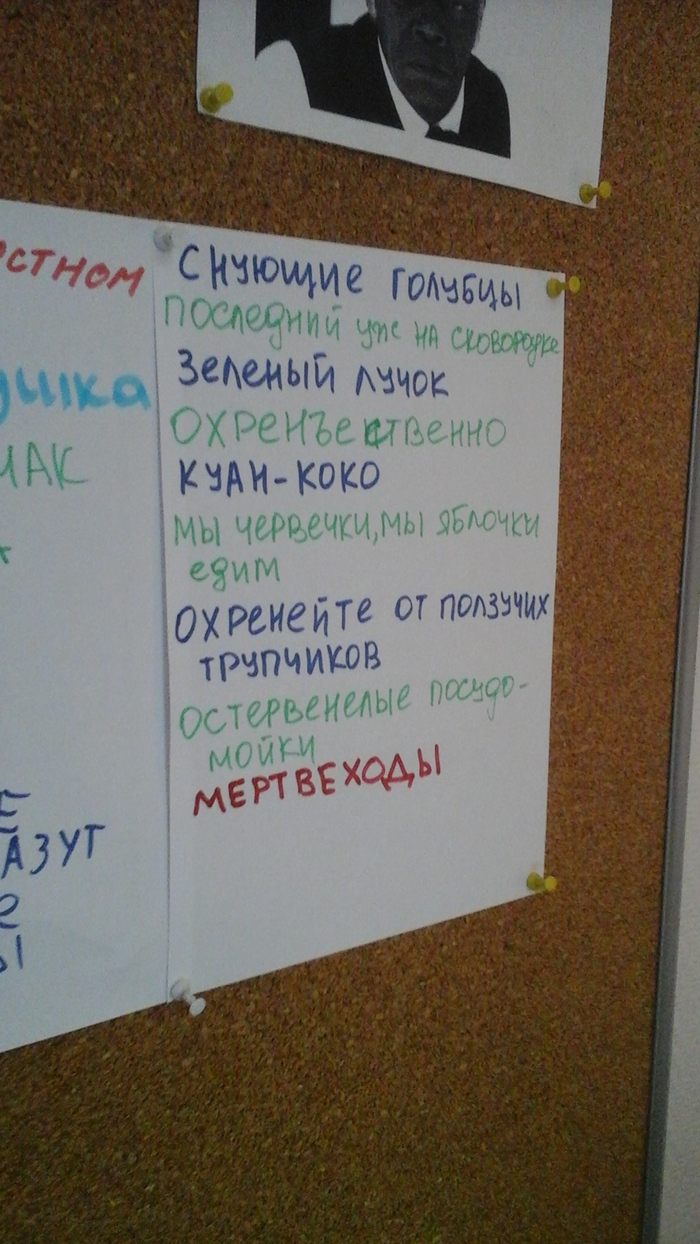 СНУЮЩИЕ ГОЛУБЦЫ
ПОСЛЕДНИЙ УЖЕ НА СКОВОРОДКЕ
Зеленый ЛУЧОК
ОХРЕНЪЕСТВЕННО
КУАН-КОКО
МЫ ЧЕРВЕЧКИ, МЫ ЯБЛОЧКИ
едим
ОХРЕНЕЙТЕ ОТ ПОЛЗУЧИХ
ТРУПЧИКОВ
ОСТЕРВЕНЕЛЫЕ ПОСУДО-
МОЙКИ
МЕРТВЕХОДЫ